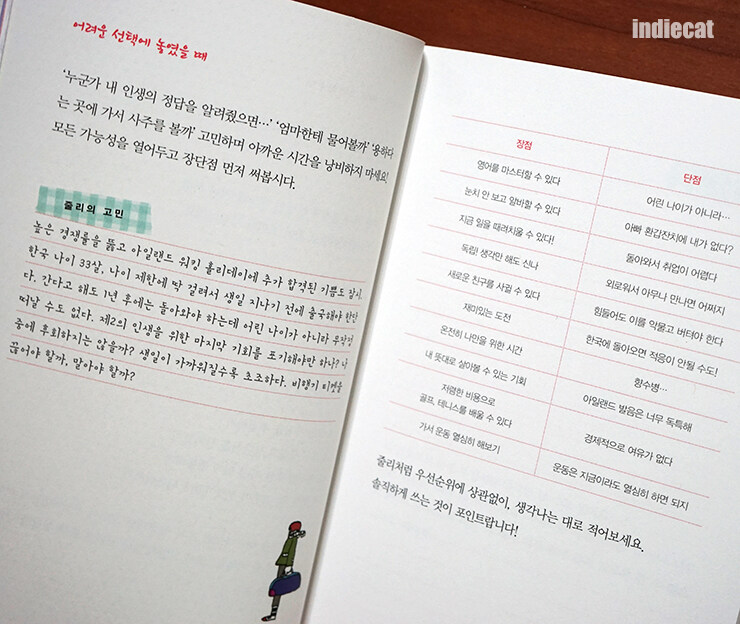 indiecat
어려운 선택에 놓였을 때
‘누군가 내 인생의 정답을 알려줬으면…’ ‘엄마한테 물어볼까’ ‘용하다
는 곳에 가서 사주를 볼까’ 고민하며 아까운 시간을 낭비하지 마세요!
모든 가능성을 열어두고 장단점 먼저 써봅시다.
줄리의 고민
높은 경쟁률을 뚫고 아일랜드 워킹 홀리데이에 추가 합격된 기쁨도 잠시,
한국 나이 33살, 나이 제한에 딱 걸려서 생일 지나기 전에 출국해야 한단
다. 간다고 해도 1년 후에는 돌아와야 하는데 어린 나이가 아니라 무작정
떠날 수도 없다. 제2의 인생을 위한 마지막 기회를 포기해야만 하나? 나
중에 후회하지는 않을까? 생일이 가까워질수록 초조하다. 비행기 티켓을
끊어야 할까, 말아야 할까?
장점 단점
영어를 마스터할 수 있다 어린 나이가 아니라…
눈치 안 보고 알바할 수 있다 아빠 환갑잔치에 내가 없다?
지금 일을 때려치울 수 있다! 돌아와서 취업이 어렵다
독립! 생각만 해도 신나 외로워서 아무나 만나면 어쩌지
새로운 친구를 사귈 수 있다 힘들어도 이를 악물고 버텨야 한다
재미있는 도전 한국에 돌아오면 적응이 안될 수도!
온전히 나만을 위한 시간 향수병…
내 뜻대로 살아볼 수 있는 기회 아일랜드 발음은 너무 독특해
저렴한 비용으로
골프, 테니스를 배울 수 있다 경제적으로 여유가 없다
가서 운동 열심히 해보기 운동은 지금이라도 열심히 하면 되지
줄리처럼 우선순위에 상관없이, 생각나는 대로 적어보세요.
솔직하게 쓰는 것이 포인트랍니다!